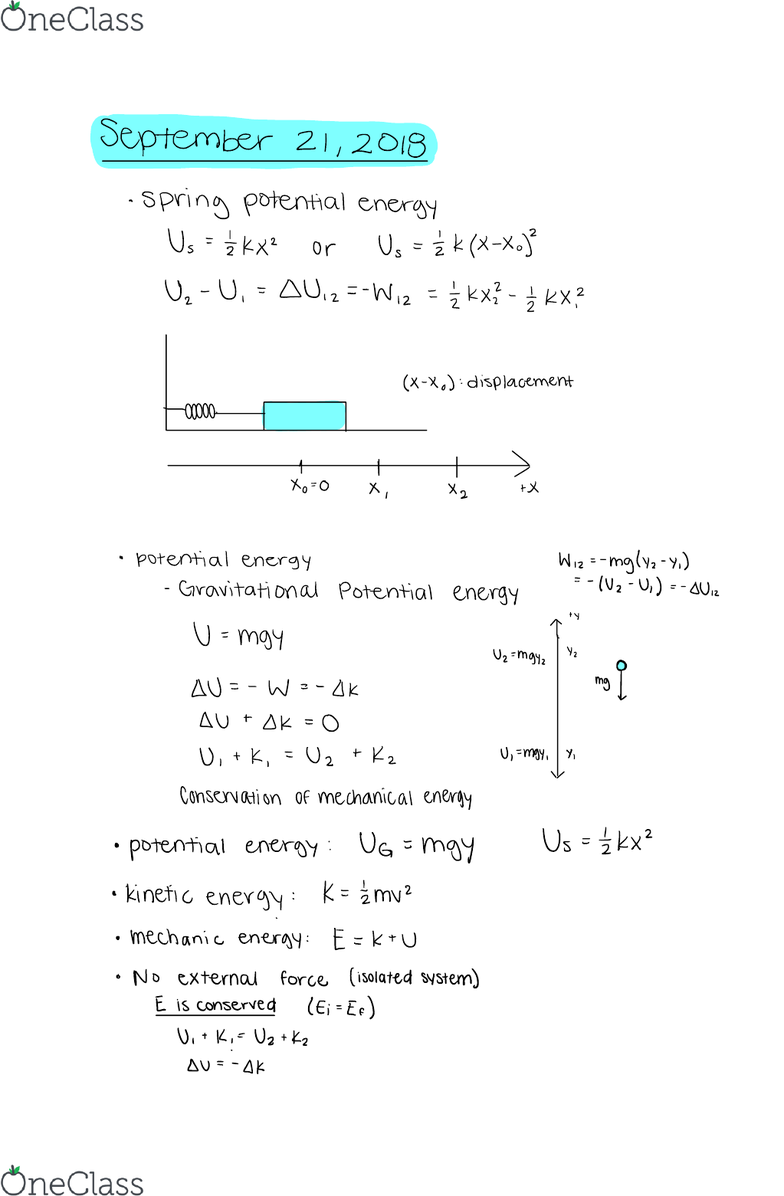 OneClass
September 21, 2018
• spring potential energy
Us = ½kx² or Us = ½k(x-x₀)²
U₂ - U₁ = ΔU₁₂ = -W₁₂ = ½kx₂² - ½kx₁²
(x-x₀): displacement
x₀=0 x₁ x₂ +x
• potential energy
- Gravitational Potential energy
U = mgy
ΔU = - W = - Δk
ΔU + Δk = 0
U₁ + K₁ = U₂ + K₂
Conservation of mechanical energy
W₁₂ = -mg(y₂-y₁)
= -(U₂-U₁) = -ΔU₁₂
+y
U₂=mgy₂ y₂
mg
U₁=mgy₁ y₁
• potential energy: UG = mgy Us = ½kx²
• kinetic energy: K = ½mv²
• mechanic energy: E = k+U
• No external force (isolated system)
E is conserved (Ei = Ef)
U₁ + K₁ = U₂ + K₂
ΔU = - Δk
OneClass